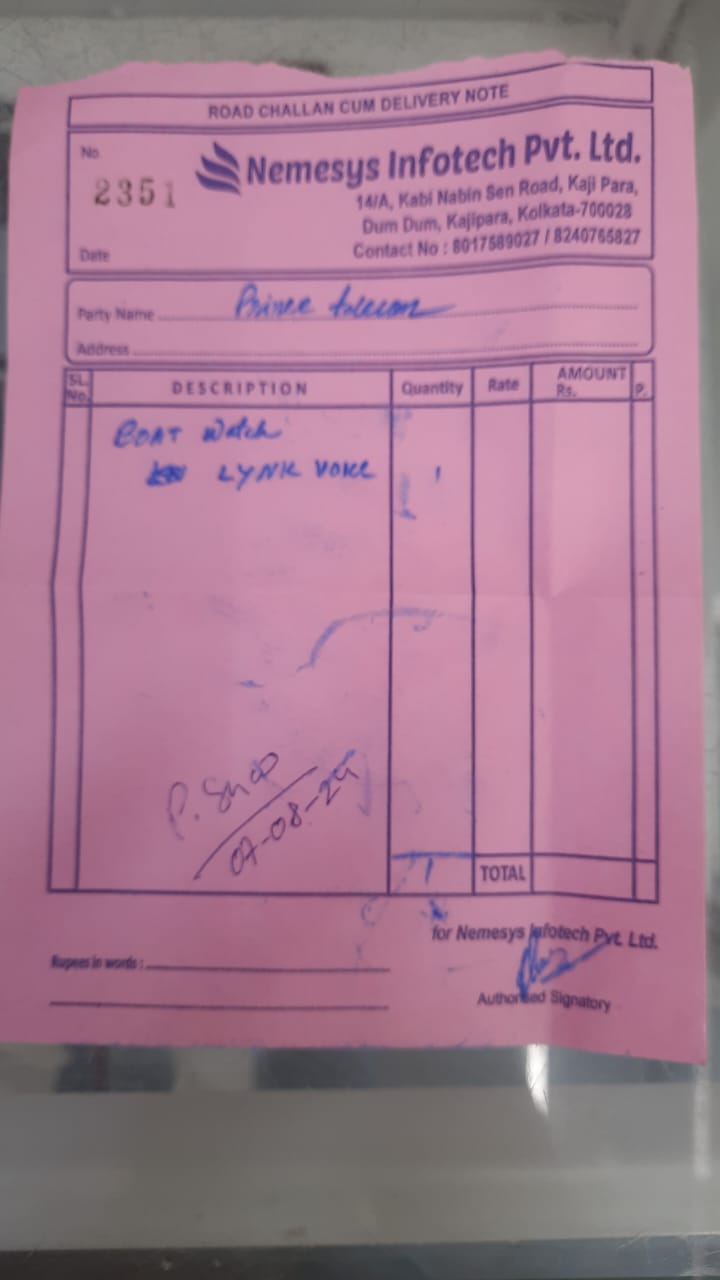 ROAD CHALLAN CUM DELIVERY NOTE
No.
2351
Nemesys Infotech Pvt. Ltd.
14/A, Kabi Nabin Sen Road, Kaji Para,
Dum Dum, Kajipara, Kolkata-700028
Contact No : 8017589027 / 8240765827
Date
Party Name Prince telecom
Address
SL. No. DESCRIPTION Quantity Rate AMOUNT Rs. P.
BOAT Watch
LYNK VOICE 1
07-08-24
1 TOTAL
for Nemesys Infotech Pvt. Ltd.
Rupees in words :
Authorised Signatory